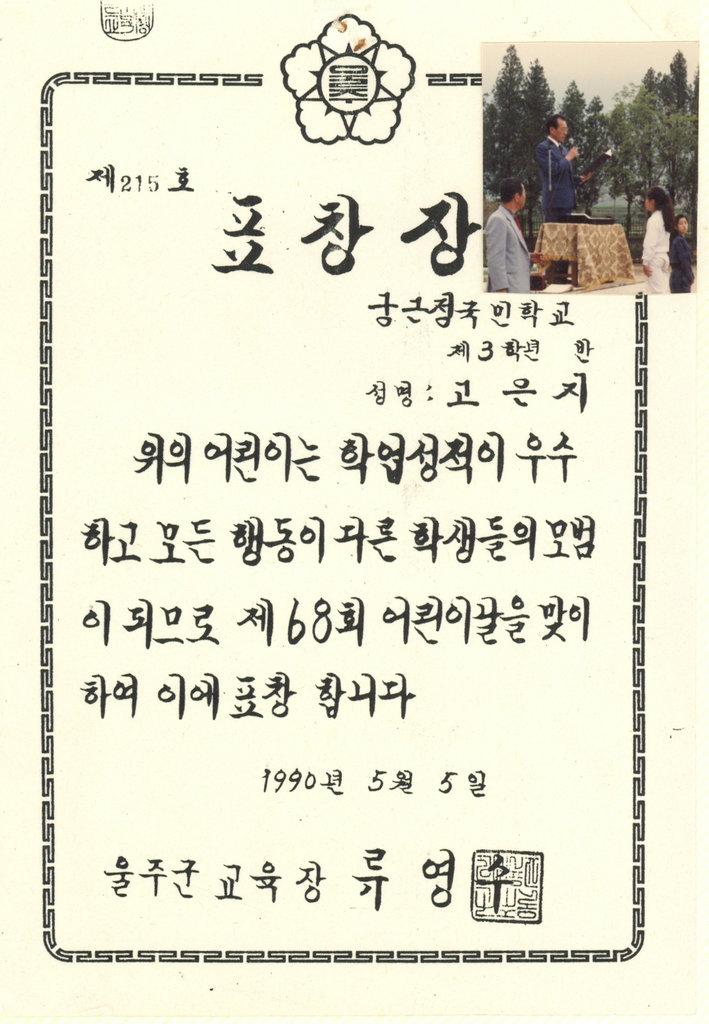 제215호
표창장
궁근정국민학교
제3학년 반
성명: 고은지
위의 어린이는 학업성적이 우수
하고 모든 행동이 다른 학생들의 모범
이 되므로 제68회 어린이날을 맞이
하여 이에 표창 합니다
1990년 5월 5일
울주군교육장 류영수